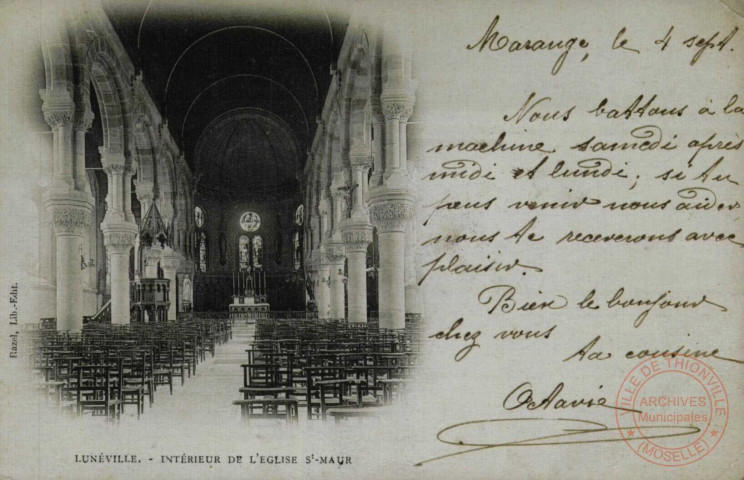 Marange, le 4 sept.
Nous battons à la
machine samedi après
midi et lundi; si tu
peus venir nous aider
nous te recevrons avec
plaisir.
Bien le bonjour
chez vous
ta cousine
Octavie
Bazel, Lib.-Edit.
LUNÉVILLE. - INTÉRIEUR DE L'EGLISE St-MAUR
VILLE DE THIONVILLE
ARCHIVES
Municipales
(MOSELLE)